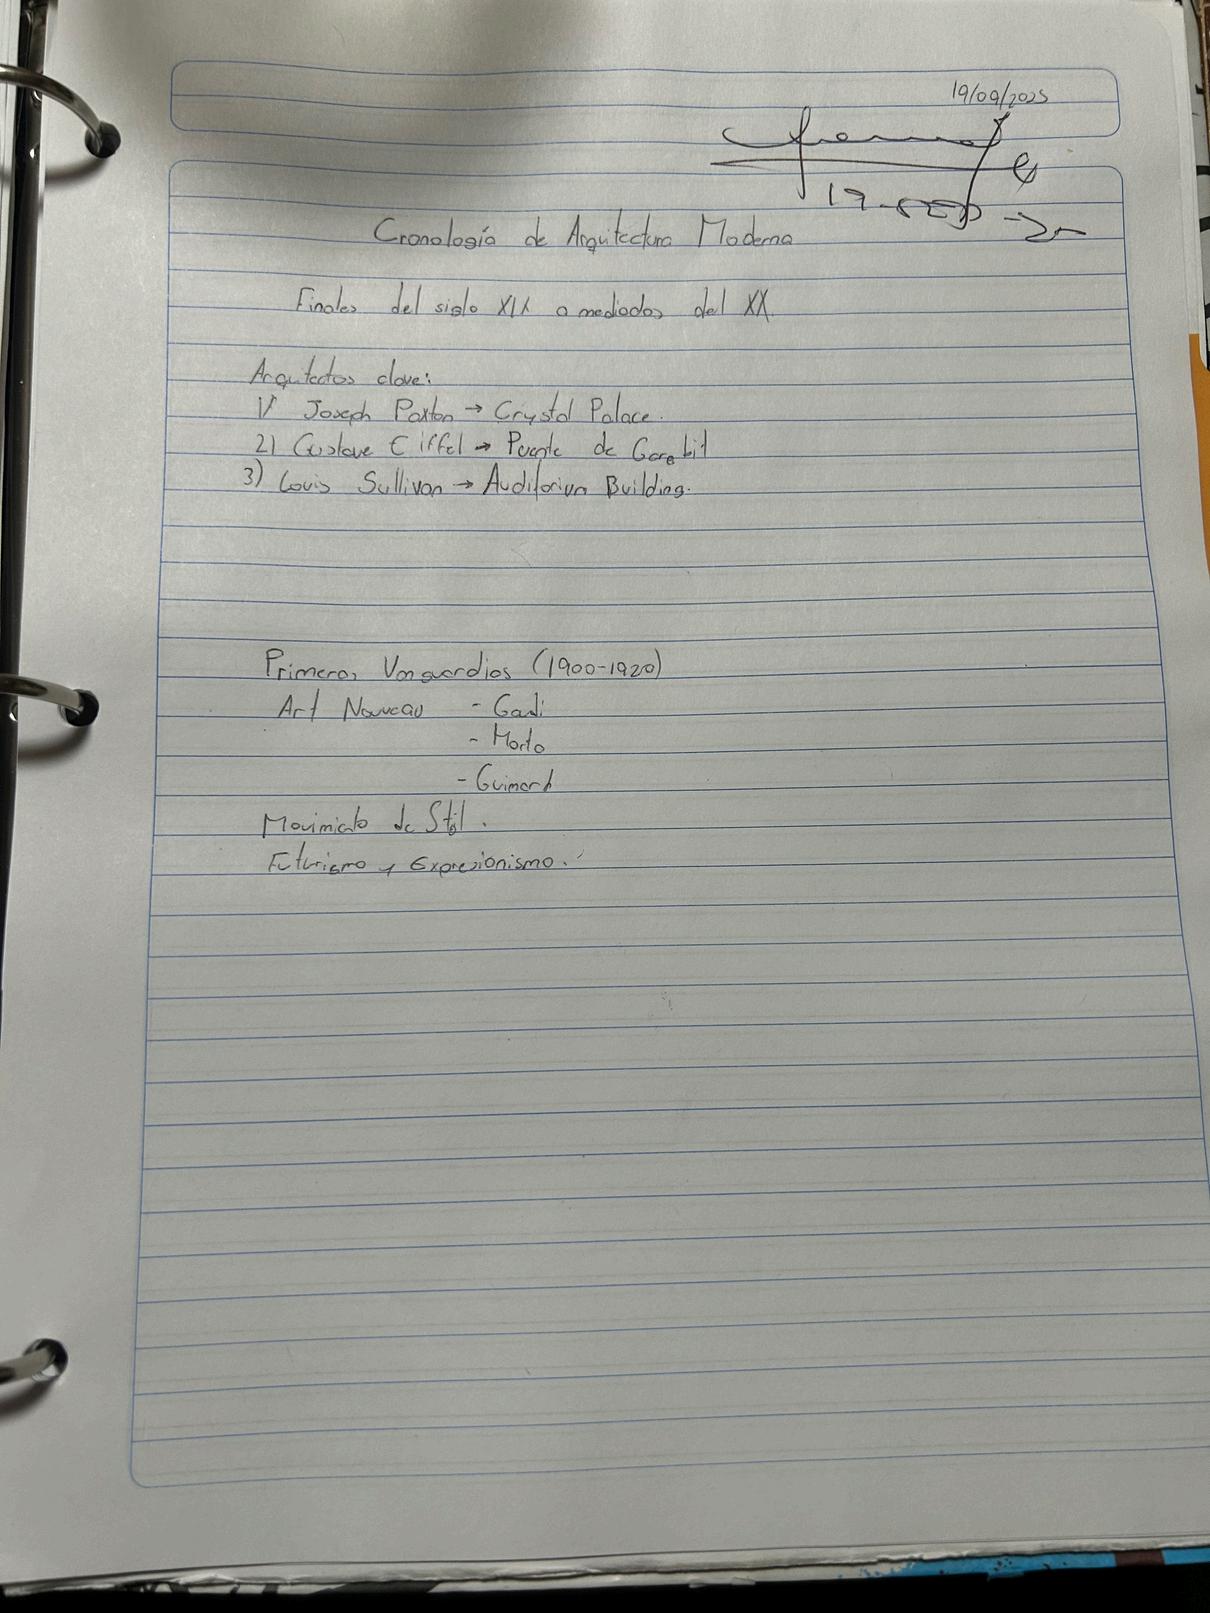 19/09/2025
19-SEP-25
Cronología de Arquitectura Moderna
Finales del siglo XIX a mediados del XX.
Arquitectos clave:
1) Joseph Paxton → Crystal Palace.
2) Gustave Eiffel → Puente de Garabit
3) Louis Sullivan → Auditorium Building.
Primeras Vanguardias (1900-1920)
Art Nouveau - Gaudi
- Horta
- Guimard
Movimiento de Stijl.
Futurismo y Expresionismo.